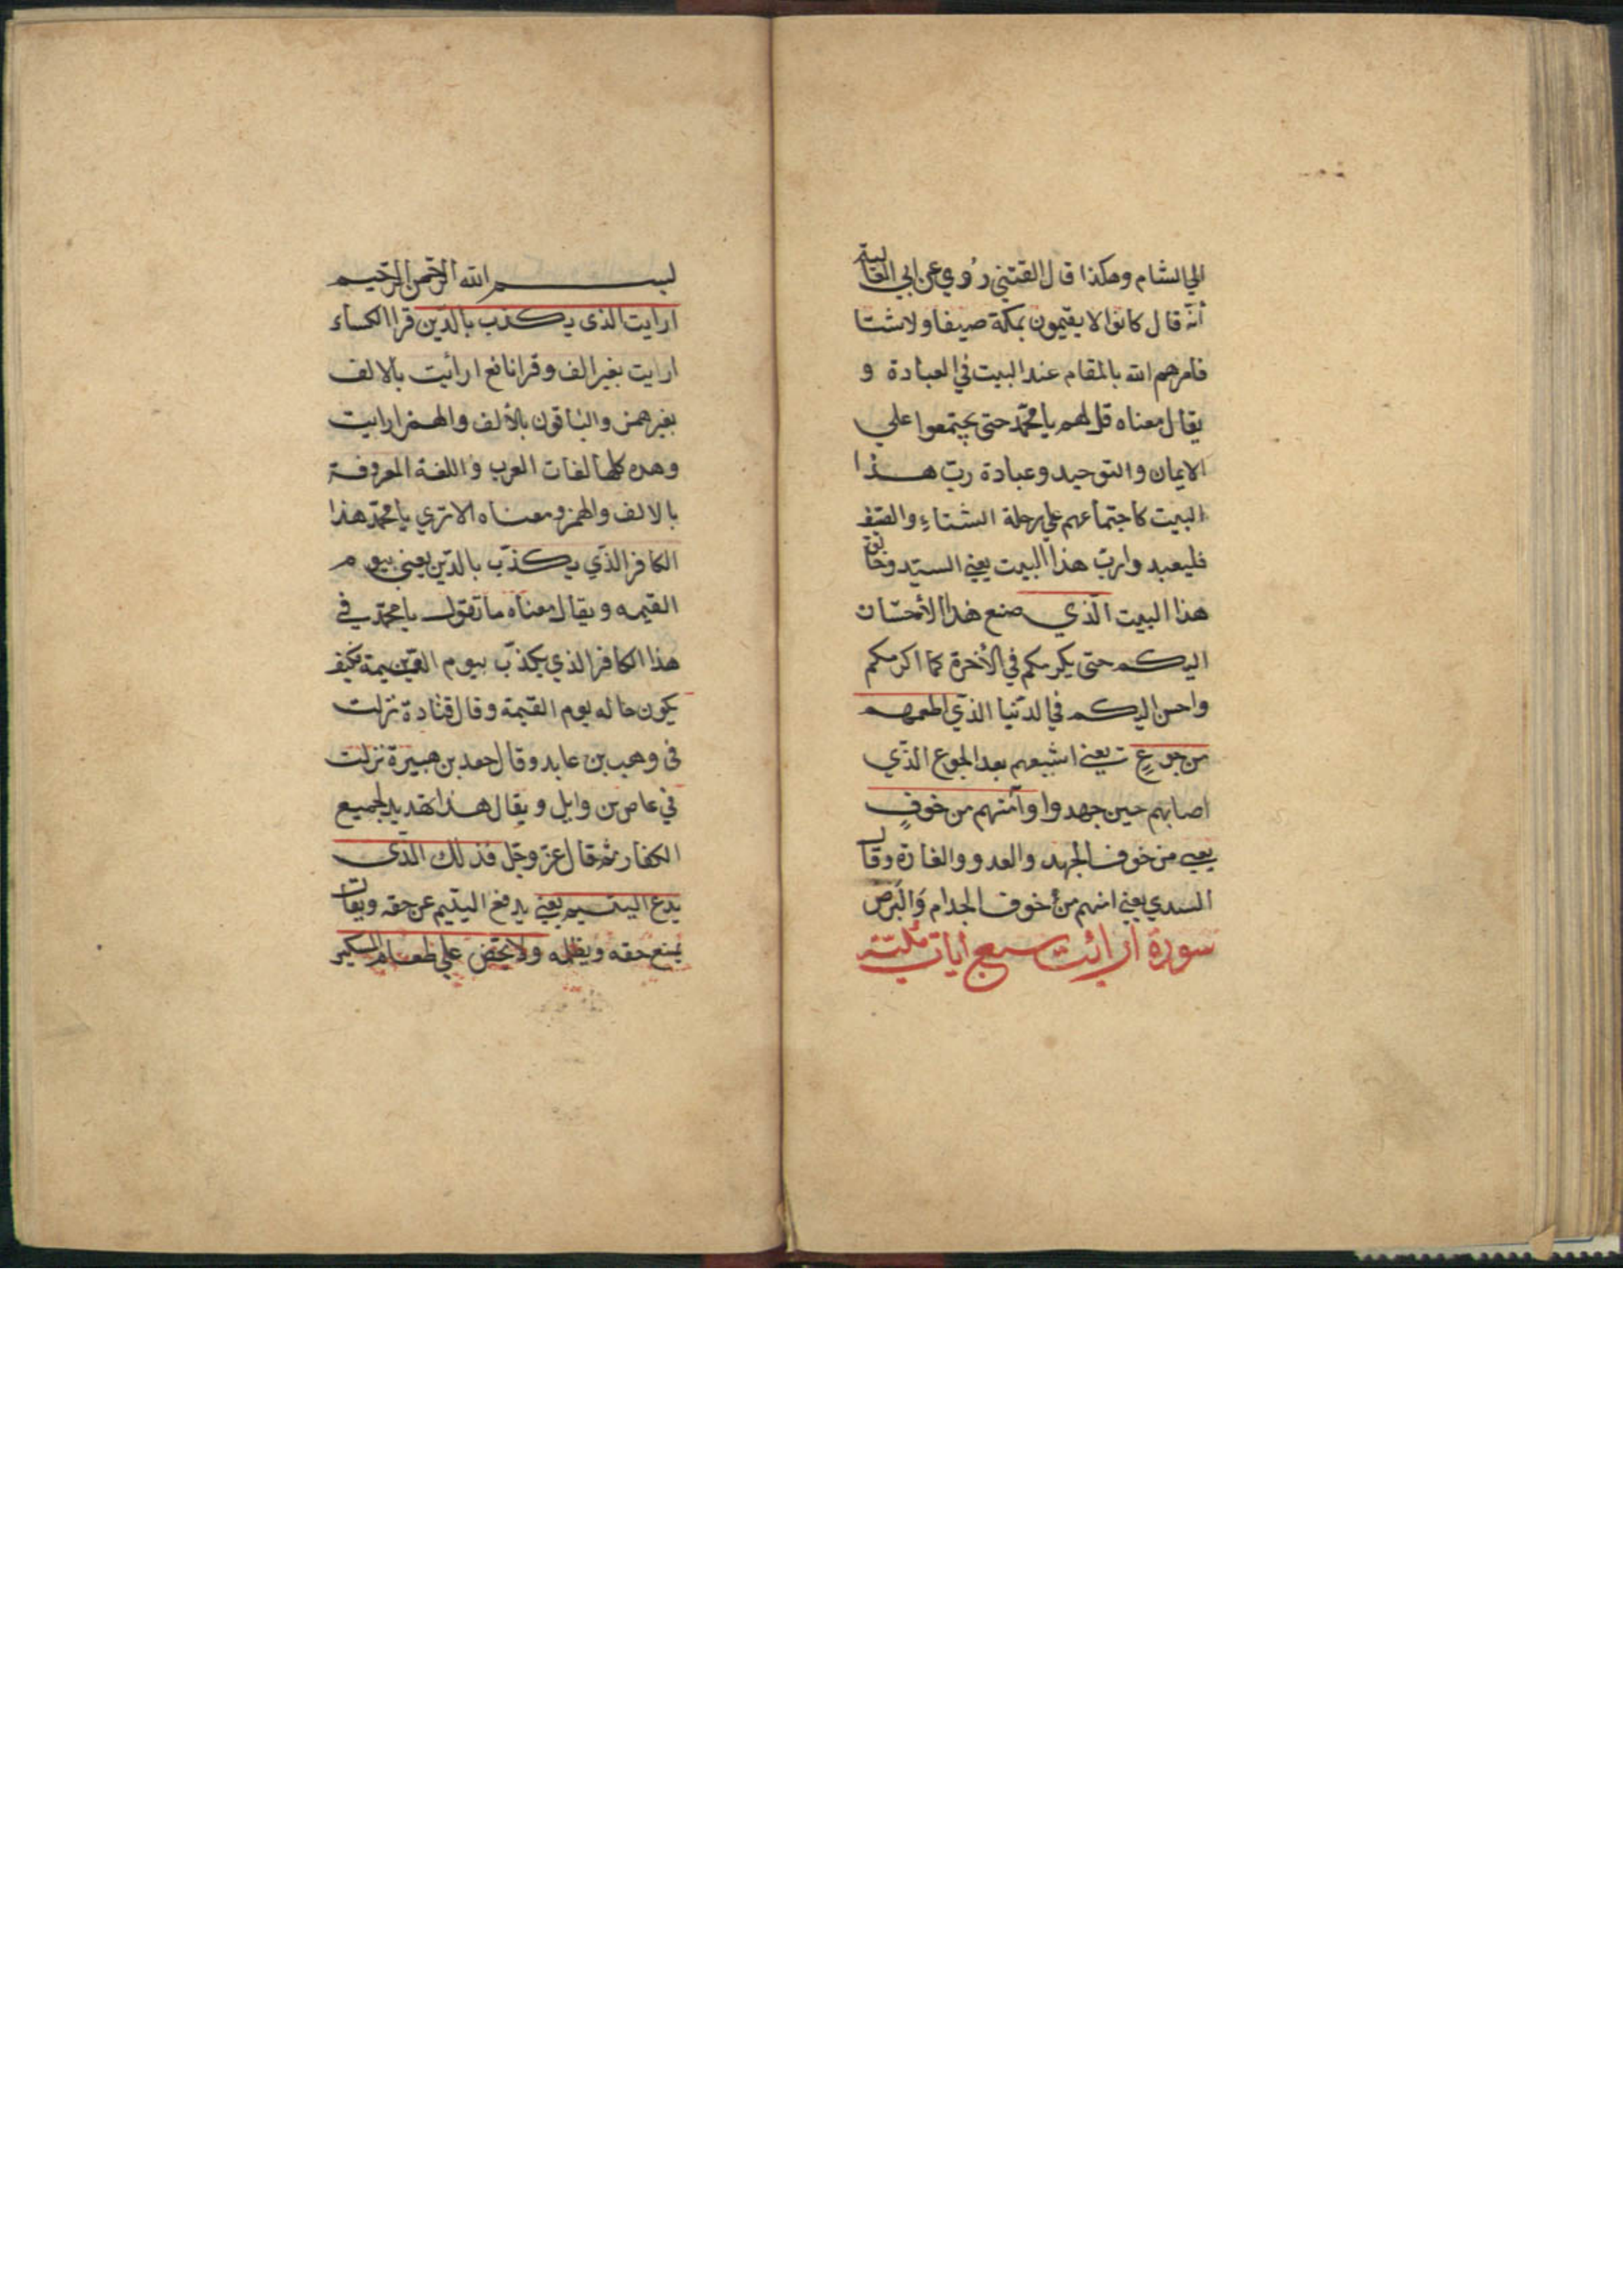 الي الشام وهكذا قال القتبي رُوي عن ابي العالية
أنه قال كانوا لا يقيمون بمكة صيفا ولا شتا
فامرهم الله بالمقام عند البيت في العبادة و
يقال معناه قل لهم يا محمّد حتى يجتمعوا علي
الايمان والتوحيد وعبادة ربّ هذا
البيت كاجتماعهم علي رحلة الشتاءِ والصيف
فليعبدوا ربّ هذا البيت يعني السيّد وخالق
هذا البيت الّذي صنع هذا الأحسان
اليكم حتى يكرمكم في الأخرة كما اكرمكم
واحسن اليكم في الدّنيا الذّي اطعمهم
من جوعٍ يعني اشبعهم بعد الجوع الذّي
اصابهم حين جهدوا وآمنهم من خوفٍ
يعني من خوف الجهد والعدو والغارة وقال
السدي يعني امنهم من خوف الجدام وَالبَرص
سورة ارائت سبع ايات مكيّة
بسم الله الرّحمن الرّحيم
ارايت الذي يكذب بالدّين قرا الكساء
ارايت بغير الف وقرا نافع ارأيت بالالف
بغير همز والباقون بالألف والهمز ارايت
وهذه كلها لغات العرب واللغة المعروفة
بالالف والهمز ومعناه الا تري يا محمّد هذا
الكافر الذّي يكذّب بالدّين يعني بيوم
القيمه ويقال معناه ما تقول يا محمّد في
هذا الكافر الذي يكذّب بيوم القيمة فكيف
يكون حاله يوم القيمة وقال قتادة نزلت
في وهب بن عابد وقال جعد بن هبيرة نزلت
في عاص بن وايل ويقال هذا تهديد لجميع
الكفار ثم قال عزّ وجّل فذلك الذّي
يدع اليتيم يعني يدفع اليتيم عن حقه ويقال
يمنع حقه ويظلمه ولا يحّض علي طعام المسكين